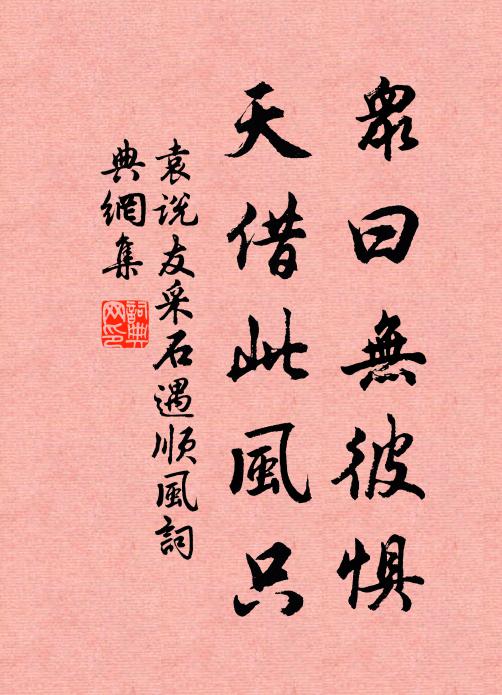 眾曰無彼惧
天借此風只
袁说友采石遇順風詞
典網集
詞典
网印